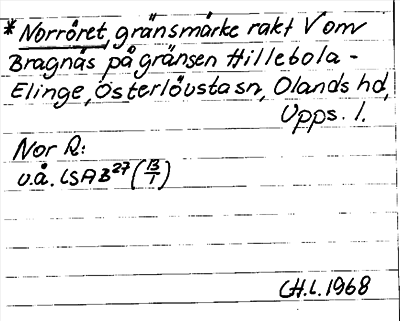 *Norröret, gränsmärke rakt V om
Bragnäs på gränsen Hillebola -
Elinge, Österlövsta sn, Olands hd,
Upps. l.
Nor R:
u.å. LSA B27 (13/1)
CH.L. 1968